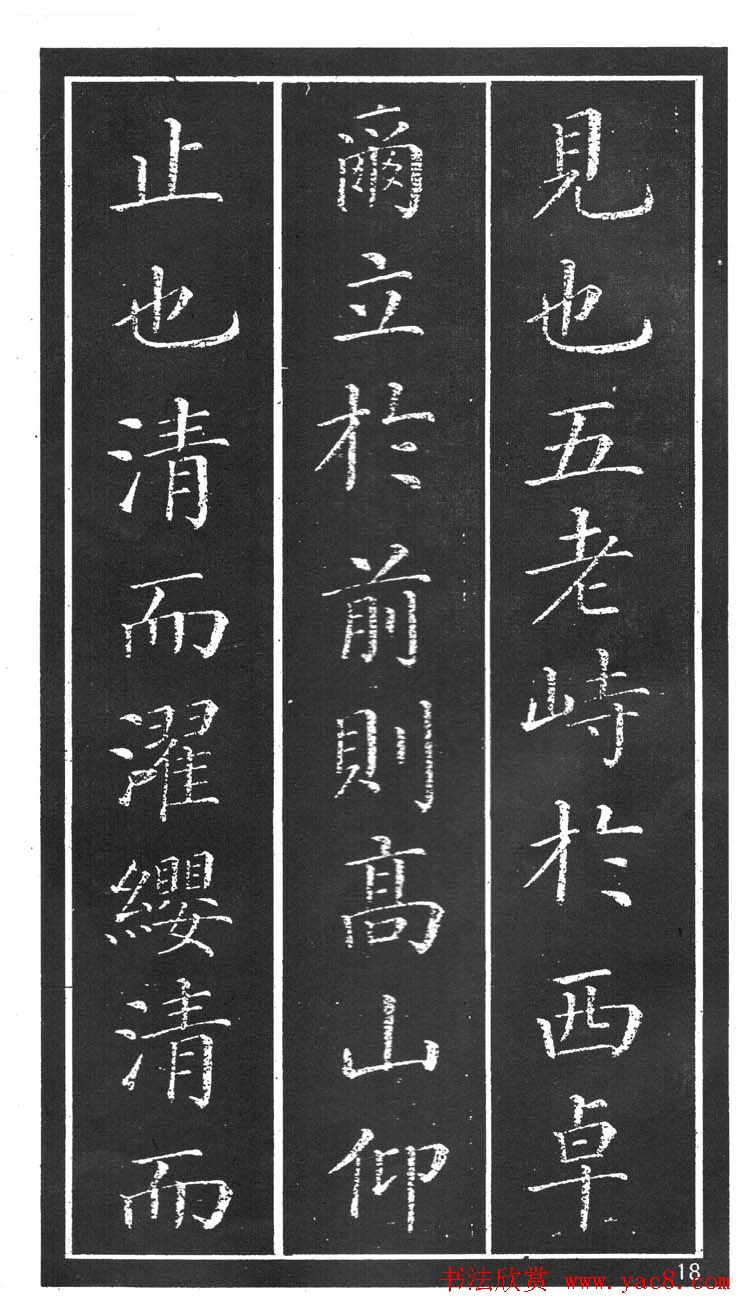 見也五老峙於西卓
爾立於前則高山仰
止也清而濯纓清而
18
书法欣赏 www.yac8.com